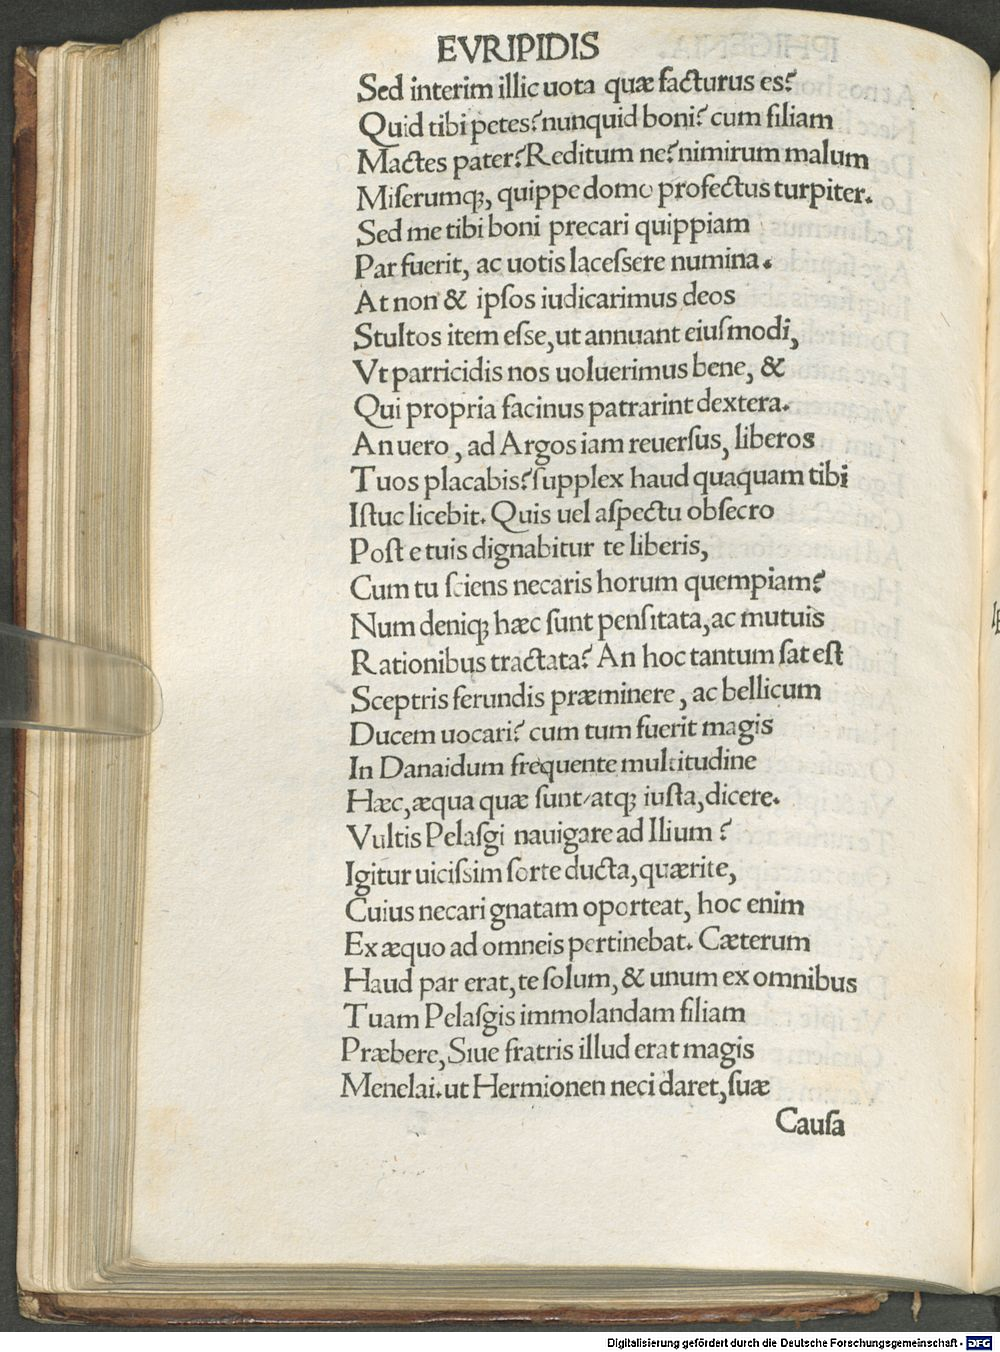 EVRIPIDIS
Sed interim illic uota quæ facturus es?
Quid tibi petes? nunquid boni? cum filiam
Mactes pater? Reditum ne? nimirum malum
Miſerumq;, quippe domo profectus turpiter.
Sed me tibi boni precari quippiam
Par fuerit, ac uotis laceſsere numina.
At non & ipſos iudicarimus deos
Stultos item eſse, ut annuant eiuſmodi,
Vt parricidis nos uoluerimus bene, &
Qui propria facinus patrarint dextera.
An uero, ad Argos iam reuerſus, liberos
Tuos placabis? ſupplex haud quaquam tibi
Iſtuc licebit. Quis uel aſpectu obſecro
Poſt e tuis dignabitur te liberis,
Cum tu ſciens necaris horum quempiam?
Num deniq; hæc ſunt penſitata, ac mutuis
Rationibus tractata? An hoc tantum ſat eſt
Sceptris ferundis præminere, ac bellicum
Ducem uocari? cum tum fuerit magis
In Danaidum frequente multitudine
Hæc, æqua quæ ſunt/atq; iuſta, dicere.
Vultis Pelaſgi nauigare ad Ilium?
Igitur uiciſsim ſorte ducta, quærite,
Cuius necari gnatam oporteat, hoc enim
Ex æquo ad omneis pertinebat. Cæterum
Haud par erat, te ſolum, & unum ex omnibus
Tuam Pelaſgis immolandam filiam
Præbere, Siue fratris illud erat magis
Menelai. ut Hermionen neci daret, ſuæ
Cauſa
Digitalisierung gefördert durch die Deutsche Forschungsgemeinschaft - DFG